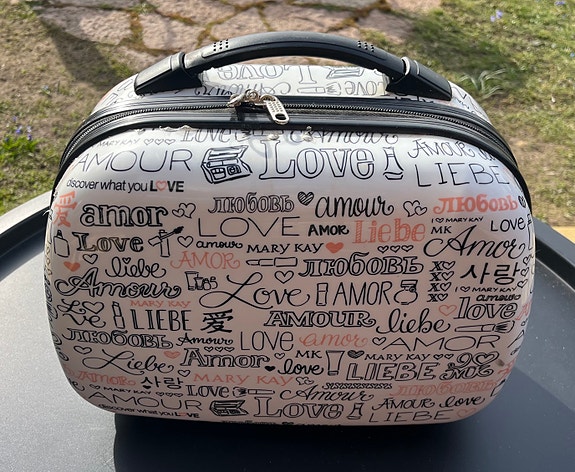 Love
Amour
MARY KAY
AMOUR Love AMOUR
LIEBE
discover what you LOVE
любовь amour любовь
爱 amor LOVE AMOR Liebe MARY KAY LOVE
Love amour MARY KAY MK Amour
liebe AMOR любовь 사랑
Amour Love AMOR MARY KAY
MARY KAY amour
Love LIEBE 爱 AMOUR liebe love
любовь Amour LOVE amor AMOUR
Liebe Amor MK MARY KAY
love LIEBE
Amor 사랑 MARY KAY любовь
AMOUR Love Love Amour AMOUR love
discover what you LOVE LIEBE